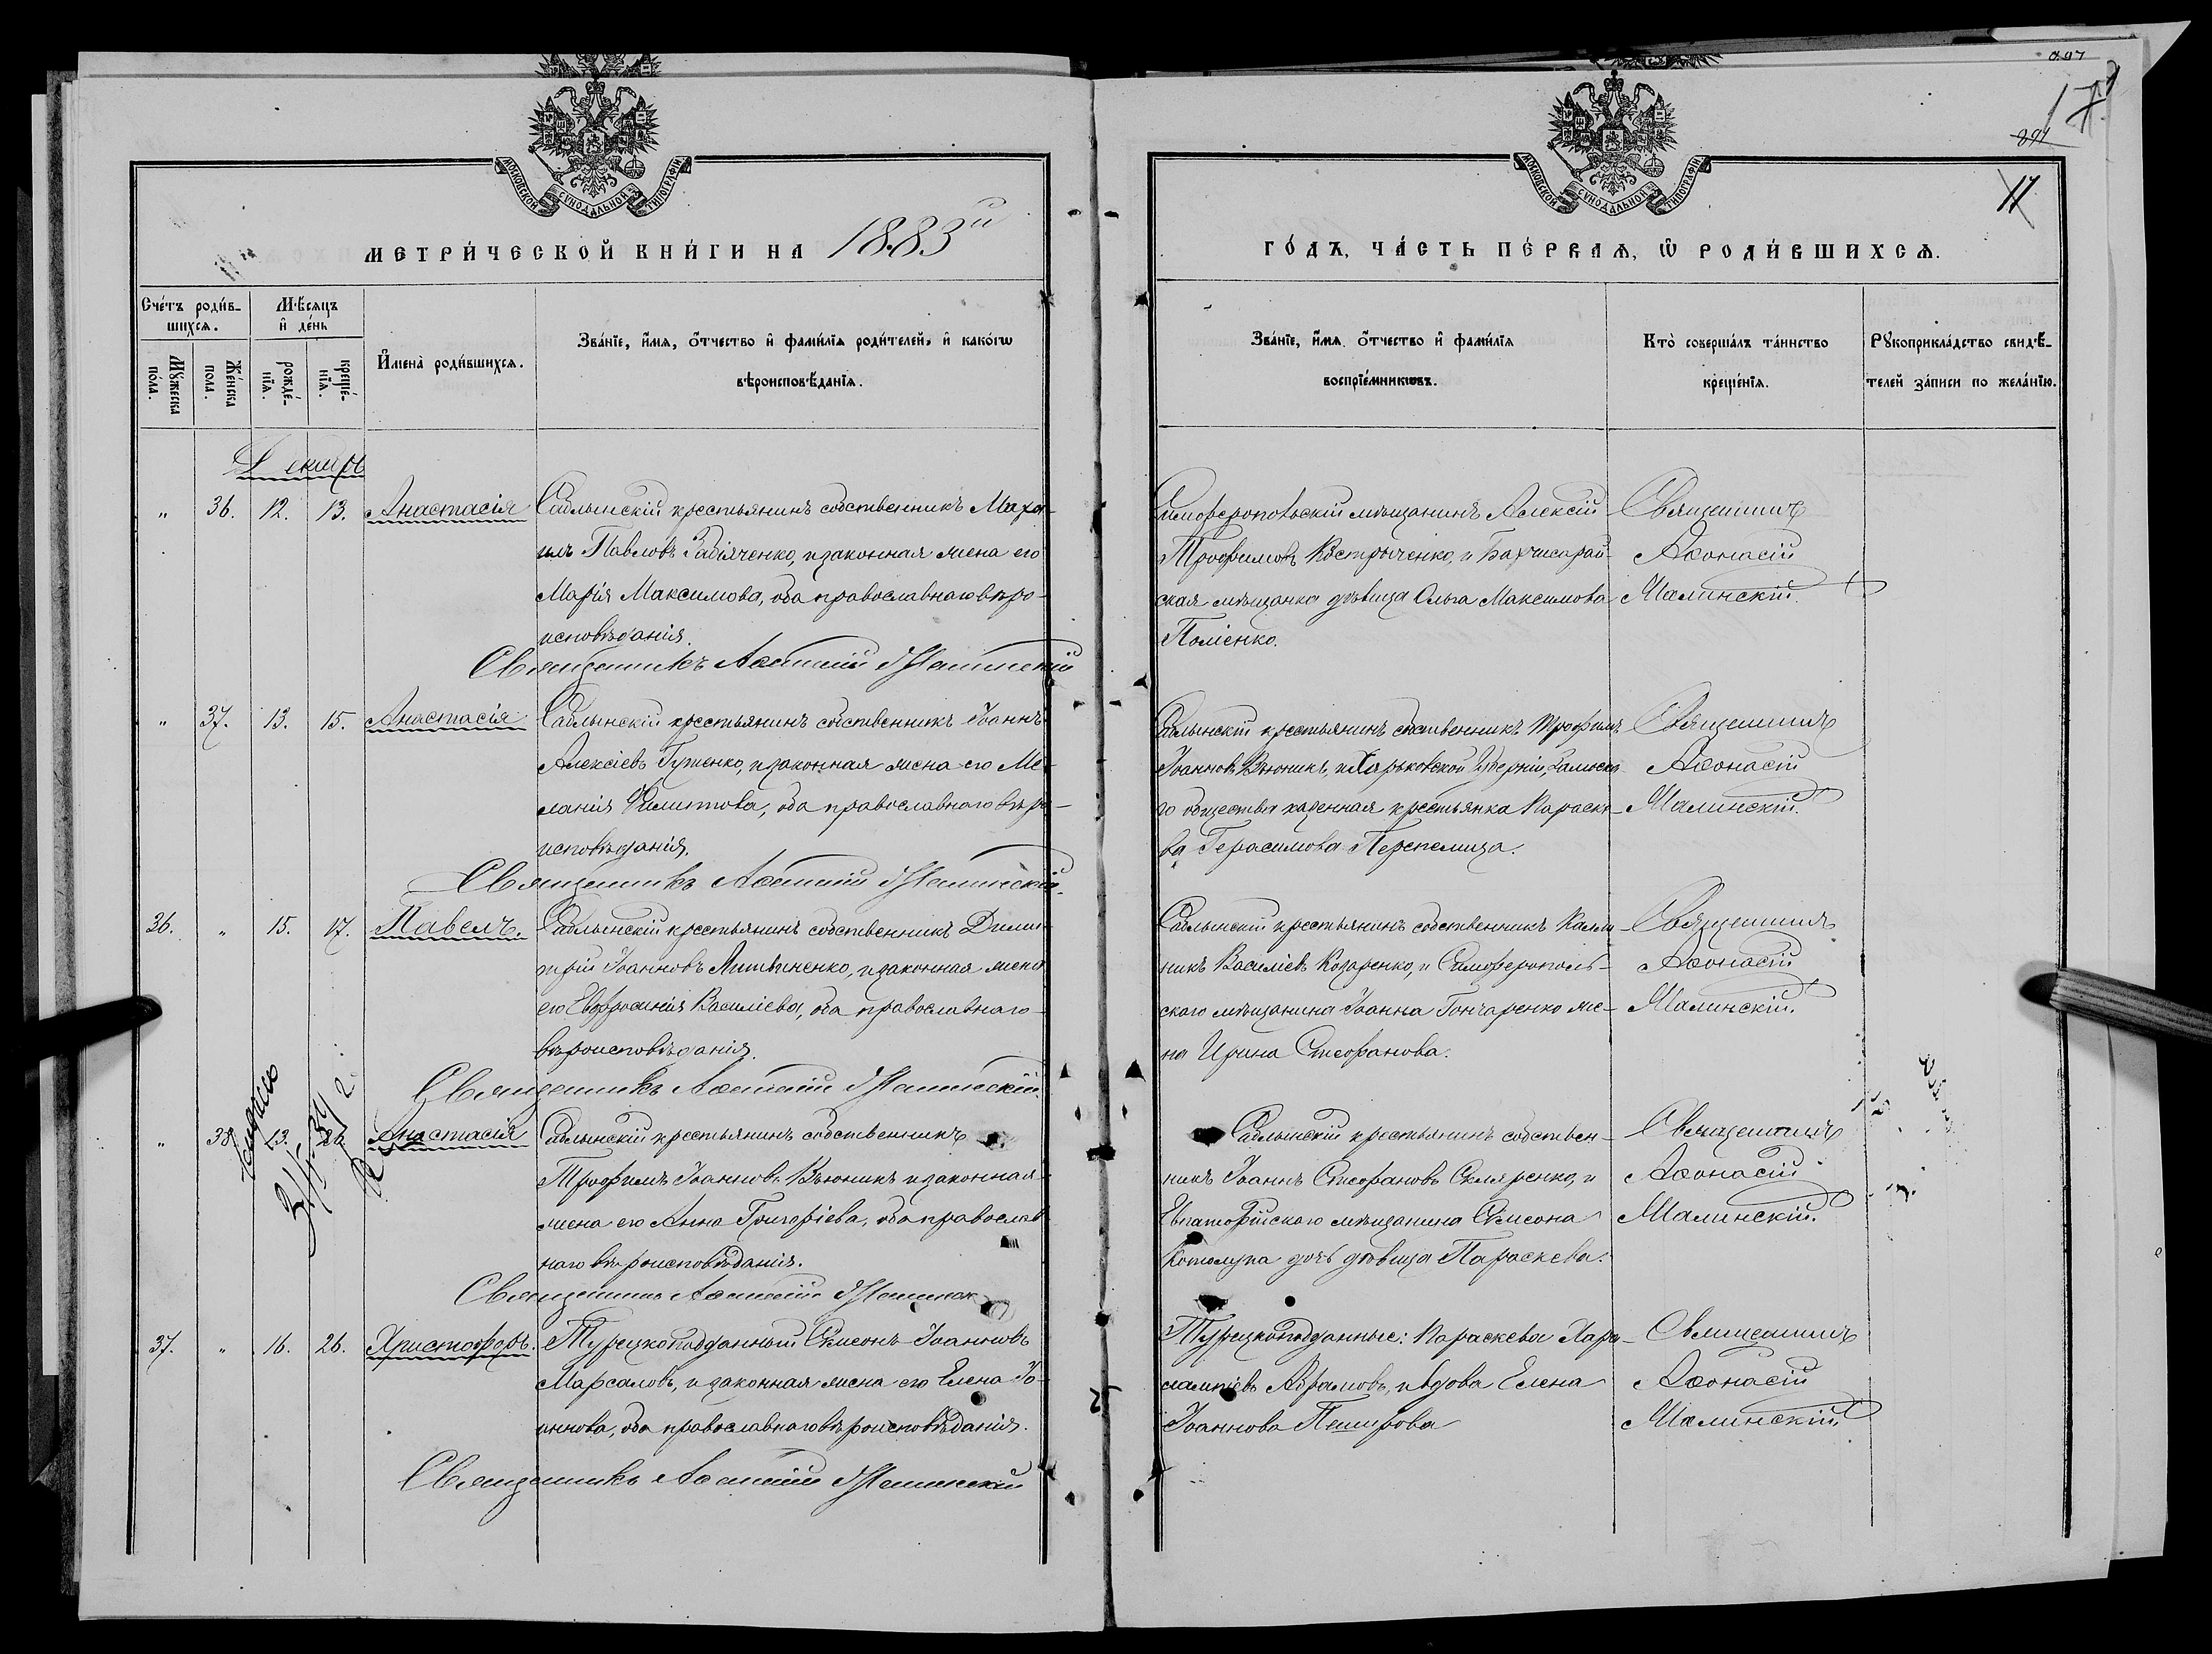 МОСКОВСКОЙ СУНОДАЛЬНОЙ ТИПОГРАФІИ
МЕТРИ́ЧЕСКОЙ КНИ́ГИ НА 1883й
Сче́тъ роди́в-
шихся.
Мѣ́сяцъ
и҆ де́нь
Мꙋ́жеска
по́ла.
Же́нска
пола.
рожде́-
нїя.
креще́-
нїя.
И҆мена̀ роди́вшихся.
Зва́нїе, и҆́мя, ѻ҆́тчество и҆ фами́лїя роди́телей, и҆ како́гѡ
вѣроисповѣ́данїя.
" 36. 12. 13. Анастасія Саблынскій крестьянинъ собственникъ
Павловъ и законная жена его
Марія Максимова, оба православнаго вѣро-
исповѣданія.
Священникъ Афанасій Малинскій
" 37. 13. 15. Анастасія Саблынскій крестьянинъ собственникъ Іоаннъ
Алексіевъ Гуменко, и законная жена его Ме-
ланія Филиппова, оба православнаго вѣро-
исповѣданія.
Священникъ Афанасій Малинскій
36. " 15. 17. Павелъ. Саблынскій крестьянинъ собственникъ Дими-
трій Іоанновъ Литвиненко, и законная жена
его Евфросинія Василіева, оба православнаго
вѣроисповѣданія.
Священникъ Афанасій Малинскій.
" 38 23. Анастасія Саблынскій крестьянинъ собственникъ
Трофимъ Іоанновъ Вьюникъ и законная
жена его Анна Григоріева, оба православ
наго вѣроисповѣданія.
Священникъ Афанасій
37. " 16. 26. Христофоръ. Турецкоподданный Симеонъ Іоанновъ
Марсаловъ, и законная жена его Елена Іо-
аннова, оба православнаго вѣроисповѣданія.
Священникъ Афанасій Малинскій
17
11
МОСКОВСКОЙ СУНОДАЛЬНОЙ ТИПОГРАФІИ
ГО́ДЪ, ЧА́СТЬ ПЕ́РВАЯ, Ѡ҆ РОДИ́ВШИХСЯ.
Зва́нїе, и҆́мя, ѻ҆́тчество и҆ фами́лїя
воспрїе́мникѡвъ.
Кто̀ соверша́лъ та́инство
креще́нїя.
Рꙋкоприкла́дство свидѣ́-
телей за́писи по жела́нїю.
Симферопольскій мѣщанинъ Алексій Священникъ
Трофимовъ и Бахчисарай- Афонасій
ская мѣщанка дѣвица Ольга Максимова Малинскій.
Поліенко.
Саблынскій крестьянинъ собственникъ Трофимъ Священникъ
Іоанновъ Вьюникъ, и Харьковской Губерніи, Афонасій
го общества казенная крестьянка Параске- Малинскій.
ва Герасимова Перепелица.
Саблынскій крестьянинъ собственникъ Калли- Священникъ
никъ Василіевъ Козаренко, и Симферополь- Афонасій
скаго мѣщанина Іоанна Гончаренко же- Малинскій.
на Ирина Стефанова.
Саблынскій крестьянинъ собствен- Священникъ
никъ Іоаннъ Стефановъ Скляренко, и Афонасій
Евпаторійскаго мѣщанина Симеона Малинскій.
дочь дѣвица Параскева.
Турецкоподданные: Параскева Хара- Священникъ
лампіевъ Абрамовъ, и вдова Елена Афонасій
Іоаннова Малинскій